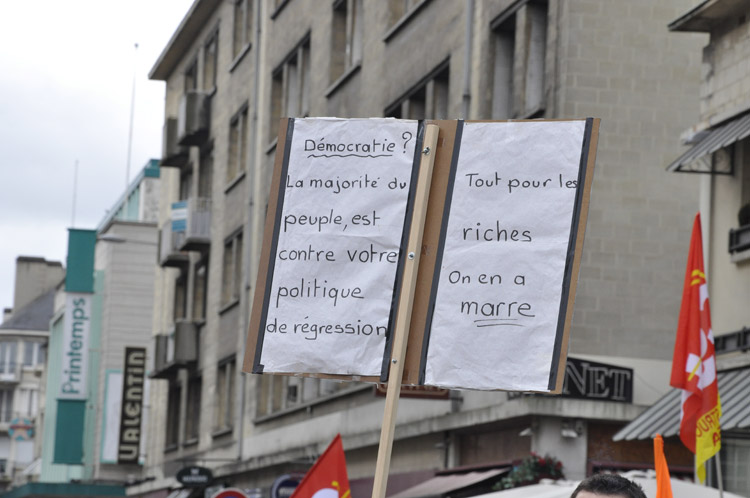 Démocratie ?
La majorité du
peuple, est
contre votre
politique
de régression
Tout pour les
riches
On en a
marre
Printemps
VALENTIN
NET